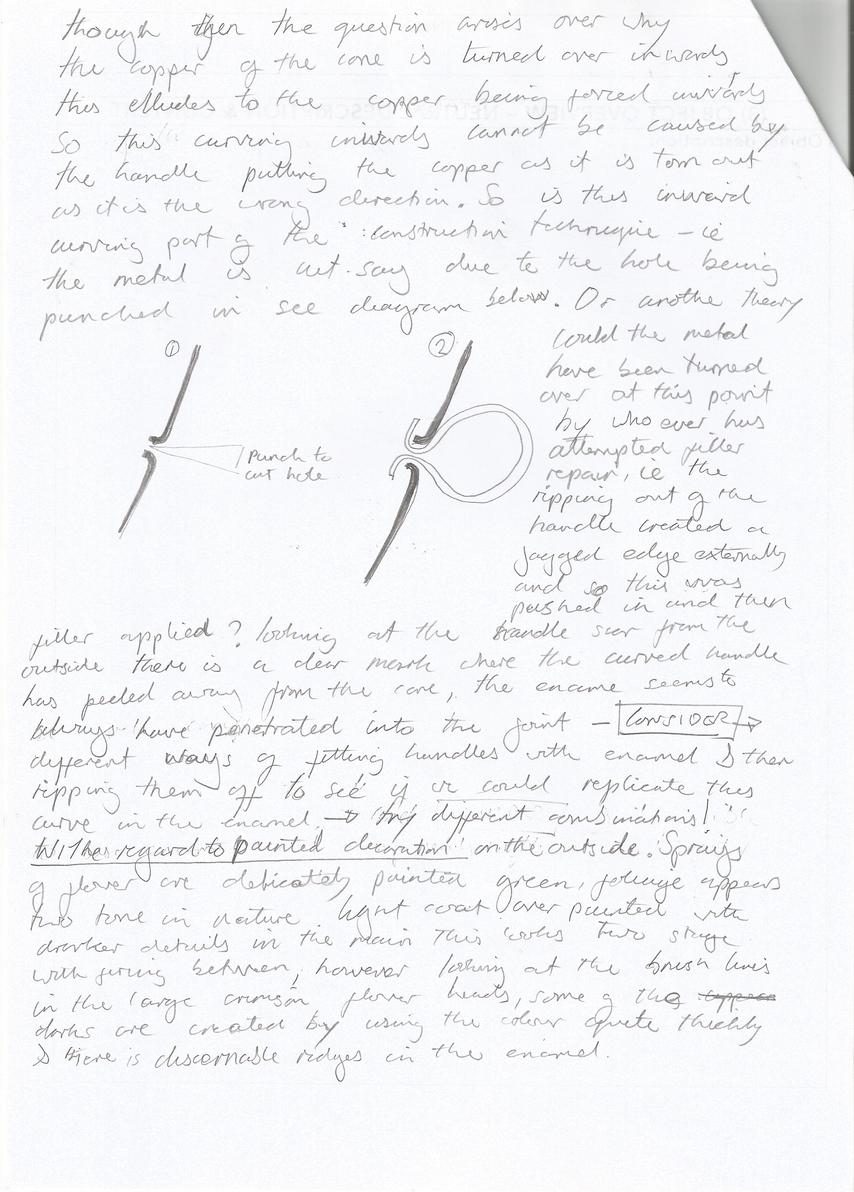 though then the question arises over why
the copper of the cone is turned over inwards
this elludes to the copper being forced inwards
So this curving inwards cannot be caused by
the handle pulling the copper as it is torn out
as it is the wrong direction. So is this inward
curving part of the construction technique – ie
the metal is cut say due to the hole being
punched in see diagram below. Or anothe theory
could the metal
have been turned
over at this point
by who ever has
attempted filler
repair, ie the
ripping out of the
handle created a
jagged edge externally
and so this was
pushed in and then
① ②
Punch to
cut hole
filler applied? looking at the handle scar from the
outside there is a clear mark where the curved handle
has peeled away from the core, the ename seems to
always have penetrated into the joint – CONSIDER →
different ways of fitting handles with enamel & then
ripping them off to see if we could replicate this
curve in the enamel → try different combinations!
With regard to painted decoration on the outside. Sprays
of flower are delicately painted green, foliage appears
two tone in nature light coat over painted with
darker details in the main this looks two stage
with firing between, however looking at the brush lines
in the large crimson flower heads, some of the
darks are created by using the colour quite thickly
& there is discernable ridges in the enamel.